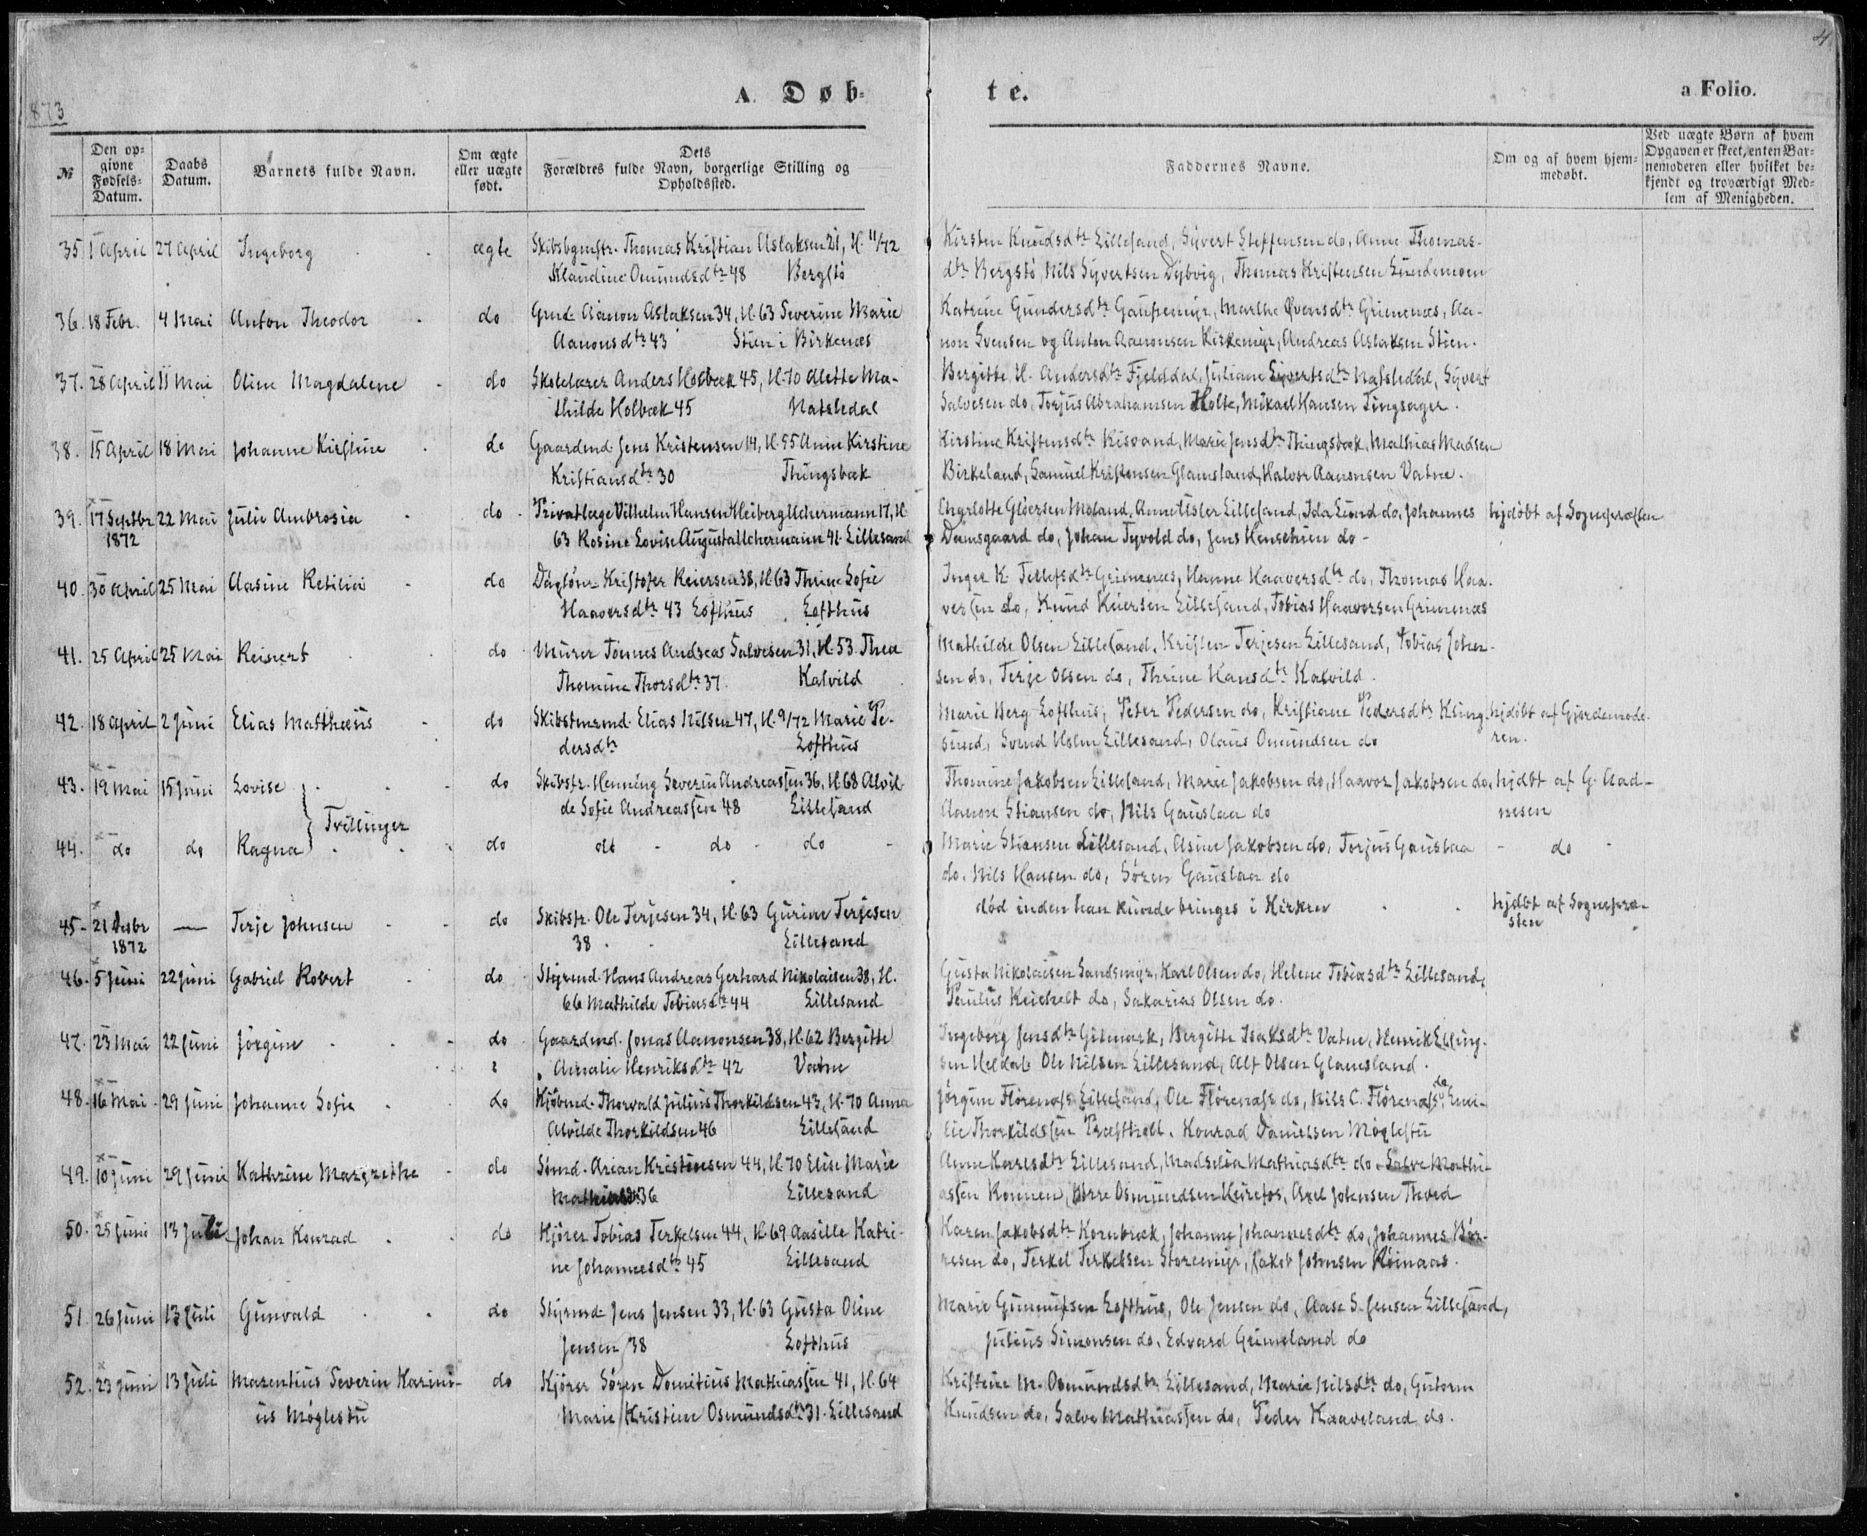 4
873
A. Døb-
te.
a Folio.
№
Den op-
givne
Fødsels-
Datum.
Daabs
Datum.
Barnets fulde Navn.
Om ægte
eller uægte
født.
Dets
Forældres fulde Navn, borgerlige Stilling og
Opholdssted.
Faddernes Navne.
Om og af hvem hjem-
medøbt.
Ved uægte Børn af hvem
Opgaven er skeet, enten Bar-
nemoderen eller hvilket be-
kjendt og troværdigt Med-
lem af Menigheden.
35 1 April 27 April Ingeborg ægte Skibsbgmstr. Thomas Kristian Aslaksen 21, H. 11/72 Kirsten Knudsdtr Lillesand, Syvert Steffensen do, Anne Thomas-
Klaudine Omundsdtr 48 Bergstø dtr Bergstø, Nils Syvertsen Dybvig, Thomas Kristensen Lundemoen
36. 18 Febr. 4 Mai Anton Theodor do Gmd. Aanon Aslaksen 34, H. 63 Severine Marie Katrine Gundersdtr Gaupemyr, Marthe Øvensdtr Grimenæs, Aa-
Aanonsdtr 43 Stien i Birkenæs non Svensen og Anton Aanonsen Kirkemyr, Andreas Aslaksen Stien.
37. 28 April 11 Mai Oline Magdalene do Skolelærer Anders Holbæk 45, H. 70 Alette Ma- Bergitte H. Andersdtr Fjelddal, Juliane Syvertsdtr Natsledal, Syvert
thilde Holbæk 45 Natsledal Salvesen do, Torjus Abrahamsen Holte, Mikael Hansen Tingsager.
38. 15 April 18 Mai Johanne Kirstine do Gaardmd. Jens Kristensen 14, H. 55 Anne Kirstine Kirstine Kristensdtr Risvand, Marie Jensdtr Thingsbæk, Mathias Madsen
Kristiansdtr 30 Thingsbæk Birkeland, Samuel Kristensen Glamsland, Halvor Aanonsen Vatne.
39. 17 Septbr 22 Mai Julie Ambrosia do Privatlæge Vilhelm Hansen Kleiberg Uchermann 17, H. Charlotte Gløersen Moland, Anne Usler Lillesand, Ida Lund do, Johannes hjdøbt af Sognepræsten
1872 63 Rosine Lovise Augusta Uchermann 41 Lillesand Damsgaard do, Johan Tyvold do, Jens Henschien do
40. 30 April 25 Mai Aasine Retilia do Dagløner Kristofer Reiersen 38, H. 63 Thrine Sofie Inger K. Tellefsdtr Grimenæs, Hanne Haaversdtr do, Thomas Haa-
Haaversdtr 43 Lofthus Lofthus versen do, Knud Reiersen Lillesand, Tobias Haaversen Grimenæs
41. 25 April 25 Mai Reinert do Murer Tønnes Andreas Salvesen 31, H. 53 Thea Mathilde Olsen Lillesand, Kristen Terjesen Lillesand, Tobias Johan-
Thomine Thorsdtr 37. Kalvild sen do, Terje Olsen do, Thrine Hansdtr Kalvild.
42. 18 April 2 Juni Elias Matthæus do Skibstmrmd. Elias Nilsen 47, H. 9/72 Marie Pe- Marie Berg Lofthus, Peter Pedersen do, Kristiane Pedersdtr Kling- hjdøbt af Gjordemode-
dersdtr Lofthus sund, Svend Holm Lillesand, Olaus Omundsen do ren.
43. 19 Mai 15 Juni Lovise do Skibsfr. Henning Severin Andreassen 36, H. 68 Alvil- Thomine Jakobsen Lillesand, Marie Jakobsen do, Haavor Jakobsen do, hjdbt af G. Aad-
de Sofie Andreassen 48 Lillesand Aanon Stiansen do, Nils Gauslaa do nesen
Tvillinger
44. do do Ragna do do do do Marie Stiansen Lillesand, Asine Jakobsen do, Torjus Gauslaa do
do, Nils Hansen do, Søren Gauslaa do
45 21 Desbr — Terje Johnsen do Skibsfr. Ole Terjesen 34, H. 63 Gurine Terjesen død inden han kunde bringes i Kirken hjdbt af Sognepræ-
1872 38 Lillesand sten
46. 5 Juni 22 Juni Gabriel Robert do Styrmd. Hans Andreas Gerhard Nikolaisen 38, H. Gusta Nikolaisen Sandsmyr, Karl Olsen do, Helene Tobiasdtr Lillesand,
66 Mathilde Tobiasdtr 44 Lillesand Paulus Reichelt do, Sakarias Olsen do.
47. 23 Mai 22 Juni Jørgine do Gaardmd. Jonas Aanonsen 38, H. 62 Bergitte Ingeborg Jensdtr Gitmark, Bergitte Isaksdtr Vatne, Henrik Elling-
Amalie Henriksdtr 42 Vatne sen Heldal, Ole Nilsen Lillesand, Alf Olsen Glamsland.
48. 16 Mai 29 Juni Johanne Sofie do Kjøbmd. Thorvald Julius Thorkildsen 43, H. 70 Anna Jørgine Flørenæss Lillesand, Ole Flørenæss do, Nils C. Flørenæss do, Emi-
Alvilde Thorkildsen 46 Lillesand lie Thorkildssen Præstholt, Konrad Danielssen Møglestu
49. 10 Juni 29 Juni Kathrine Margrethe do Sømd. Arian Kristensen 44, H. 70 Elise Marie Anne Karlsdtr Lillesand, Madselia Mathiasdtr do, Salve Mathi-
Mathiasdtr 36 Lillesand assen Konnen, Osmundsen Keirefos, Axel Johnsen Tveed
50. 25 Juni 13 Juli Johan Konrad do Kjører Tobias Terkelsen 44, H. 69 Aasille Katri- Karen Jakobsdtr Kornbræk, Johanne Johannesdtr do, Johannes Bør-
ne Johannesdtr 45 Lillesand resen do, Terkel Terkelsen Storemyr, Jakob Johnsen Røinaas.
51. 26 Juni 13 Juli Gunvald do Styrmd. Jens Jensen 33, H. 63 Gusta Oline Marie Gunnufsen Lofthus, Ole Jensen do, Aase S. Jensen Lillesand,
Jensen 38 Lofthus Julius Simonsen do, Edvard Grimeland do
52. 23 Juni 13 Juli Marentius Severin Karini- do Kjører Søren Domitius Mathiassen 41, H. 64 Kristine M. Osmundsdtr Lillesand, Marie Nilsdtr do, Gutorm
us Møglestu Marie Kristine Osmundsdtr 31. Lillesand Knudsen do, Salve Mathiassen do, Peder Kaaveland do.